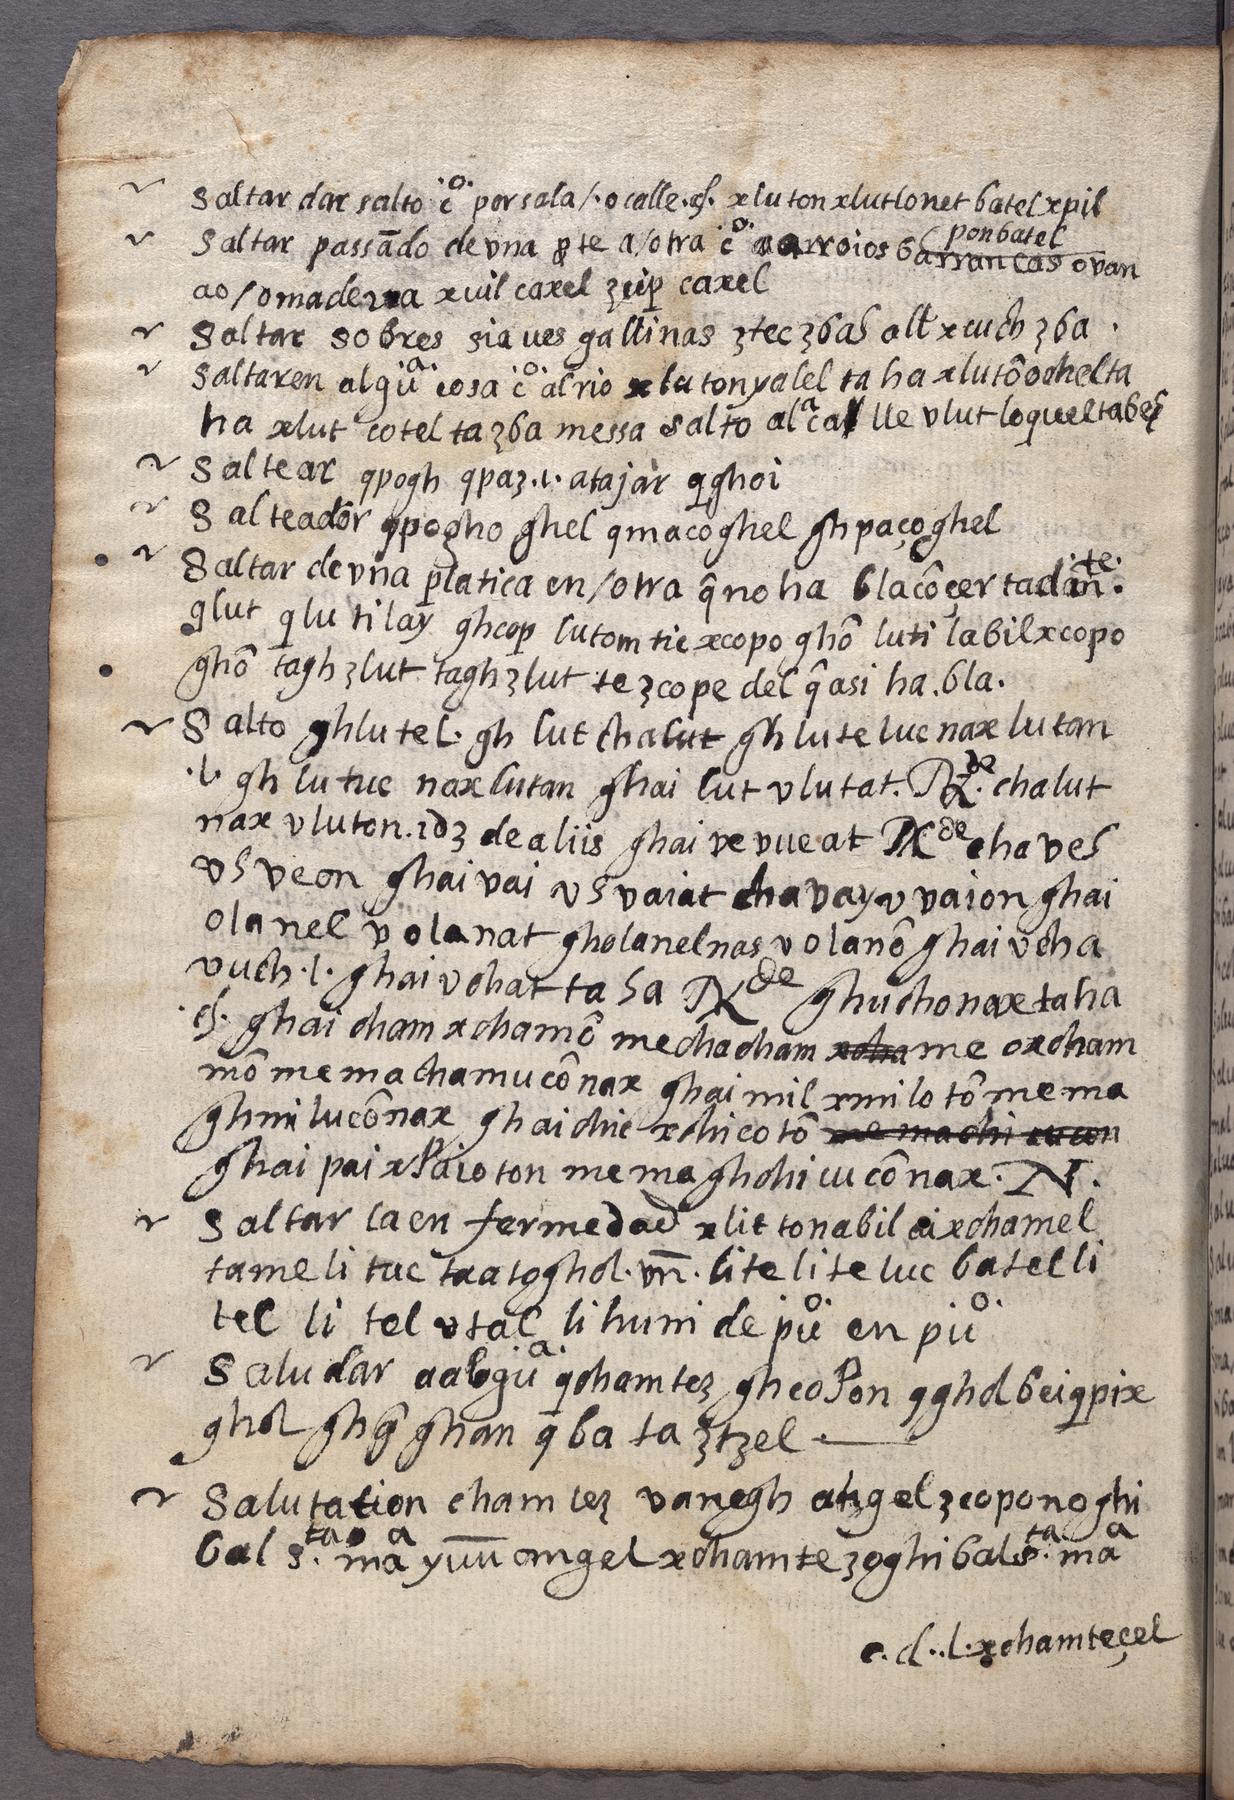 Saltar dar salto c̄o por sala /. o calle .cħ. xluton xlutlonet batel xpil
Saltar passādo de vna pte a / otra c̄o arroios barrancas o van
ponbatel
ao / o madera xuil caxel ʒuip caxel
Saltar sobresi aues gallinas ʒtec ʒbah all xcuch ʒba .
Saltar en algūa cosa c̄o al rio xluton yalel ta ha xlutō ochel ta
ha xlut cotel ta ʒba messa salto ala calle vlut loquel ta beh
Saltear qpogh qpaʒ .l. atajar qghoi
Salteador qpogho ghel qmacoghel ghpaçoghel
Saltar de vna platica en / otra q̄no ha bla cōçertadam̄te.
qlut qlutilay ghcop lutom tic xcopo ghō luti labil xcopo
ghō tagh ʒlut tagh ʒlut te ʒcope del q̄ asi ha.bla.
Salto ghlutel. gh lut chalut ghluteluc nax lutan
.l. gh lutuc nax lutan ghai lut vlutat. Rde. chalut
nax vluton. idʒ de aliis ghai ve vueat Rde cha veh
vh veon ghai vai vh vaiat cha vay v vaion ghai
olanel volanat gholanel nas volanō ghai vcha
vuch .l. ghai vchat ta ha Rde ghuchonax ta ha
.cħ. ghai cham xchamō me chacham xcha me oxcham
mō me ma chamucō nax ghai mil xmilotō me ma
ghmilucō nax ghai chic xchicotō me machi cucon
ghai pai xpaioton me ma ghchicucō nax. N.
Saltar la enfermedad xlit tonabil ai xchamel
tame lituc taatoghol. vn̄. lite liteluc batel li
tel li tel vtal lihuni de pūo en pūo
Saludar aalgūa qchamteʒ ghcopon qghol beiqpix
ghol ghḡ ghan q ba ta ʒtʒel .
Salutation chamteʒ vanegh angel ʒcoponoghi
bal S.ta ma yuu angel xchamteʒoghibal S.ta ma
c. d. .l. xchamteçel